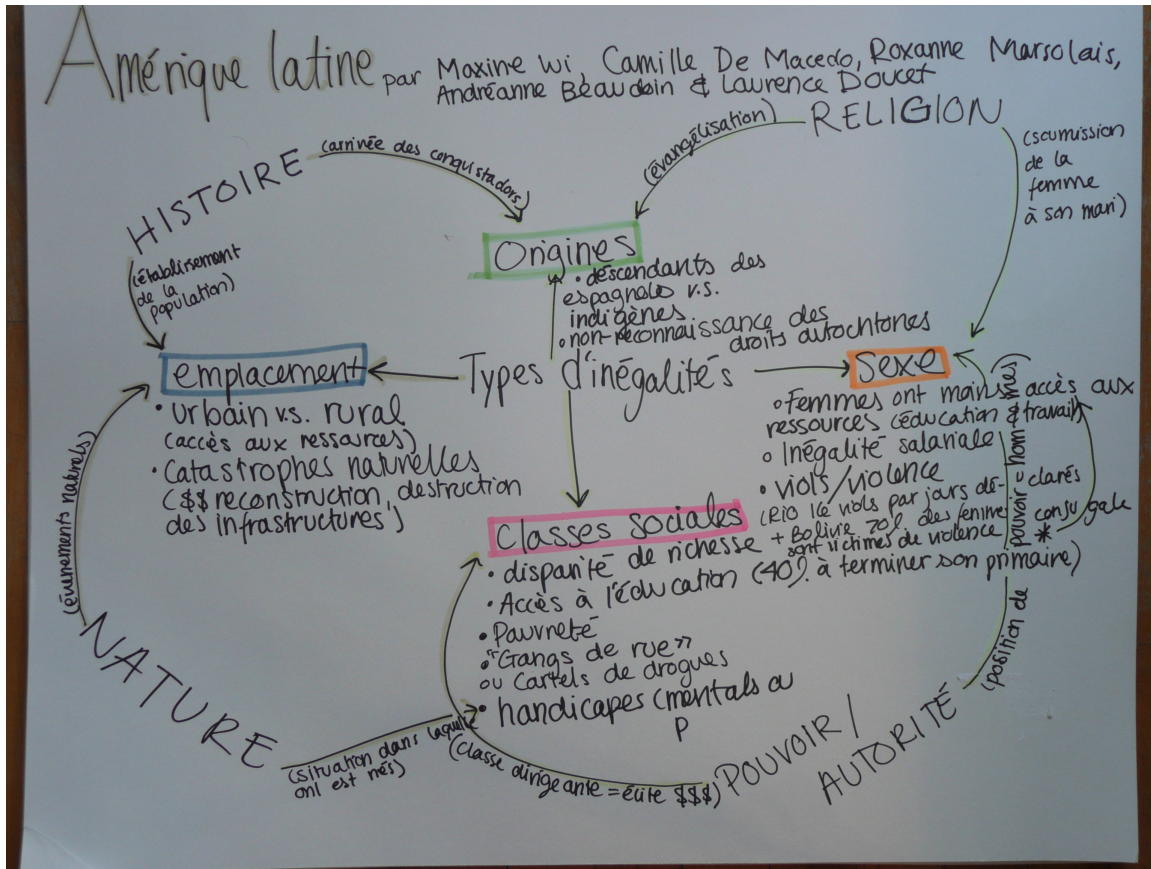 Amérique latine par Maxine Wi, Camille De Macedo, Roxanne Marsolais,
Andréanne Beaudoin & Laurence Doucet
HISTOIRE
(arrivée des conquistadors)
(évangélisation)
RELIGION
(soumission
de la
femme
à son mari)
(établissement
de la
population)
Origines
• descendants des
espagnols v.s.
indigènes
• non-reconnaissance des
droits autochtones
emplacement
Types d'inégalités
Sexe
• Urbain v.s. rural
(accès aux ressources)
• Catastrophes naturelles
($$ reconstruction, destruction
des infrastructures)
• Femmes ont moins accès aux
ressources (éducation & travail)
• Inégalité salariale
• viols/violence
(Rio 16 viols par jours dé-clarés
+ Bolivie 70% des femmes
sont victimes de violence conjugale
*
(position de pouvoir = hommes)
Classes sociales
• disparité de richesse
• Accès à l'éducation (40% à terminer son primaire)
• Pauvreté
• "Gangs de rue"
ou Cartels de drogues
• handicapes (mentals ou
P
(évènements naturels)
NATURE
(situation dans laquelle
onl est nés)
(Classe dirigeante = élite $$$)
POUVOIR /
AUTORITÉ